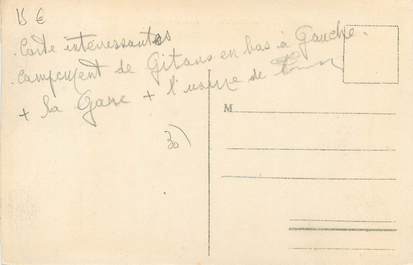 15 €
Carte intéressantes
campement de Gitans en bas à Gauche.
+ la Gare + l'usine de
30)
M